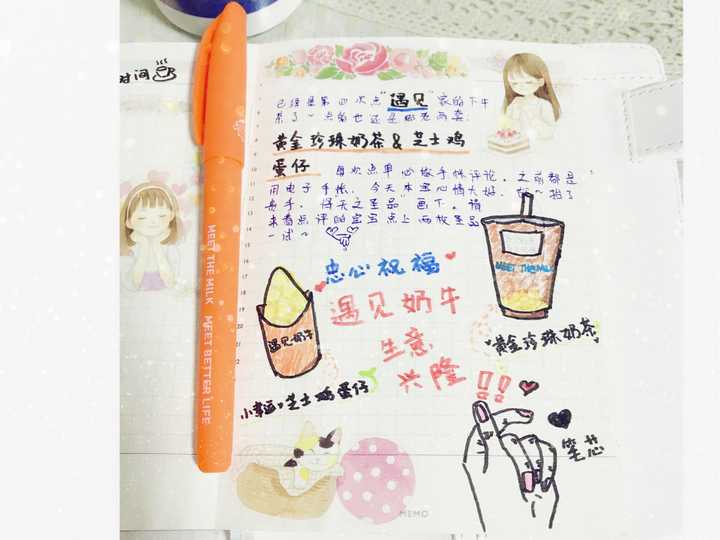 时间
已经是第四次点"遇见"家的下午
茶了~点的也还是那老两样:
黄金珍珠奶茶&芝士鸡
蛋仔 每次点单必做手帐评论。之前都是
用电子手帐,今天本宝心情大好,
"画下。请
来看点评的宝宝点上两枚至品
一试~
忠心祝福
遇见奶牛
生意
兴隆!!
遇见奶牛
小幸运·芝士鸡蛋仔
MEET THE MILK
"黄金珍珠奶茶"
笔芯
MEMO
MEET THE MILK MEET BETTER LIFE